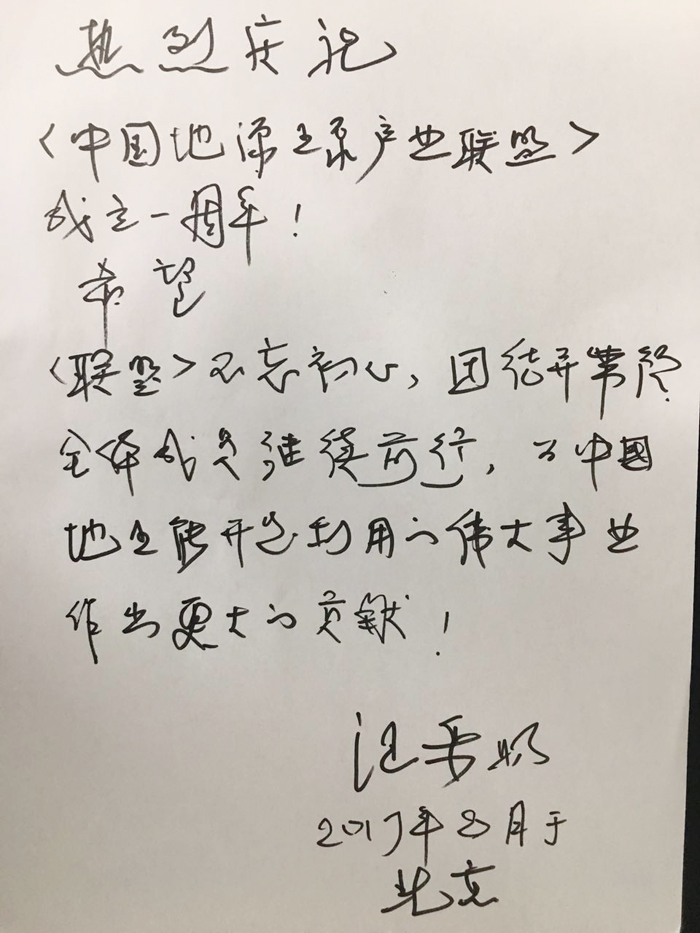 热烈庆祝
<中国地源热泵产业联盟>
成立一周年！
希望
<联盟>不忘初心，团结并带领
全体成员继续前行，为中国
地热能开发利用的伟大事业
作出更大的贡献！
汪
2017年8月于
北京